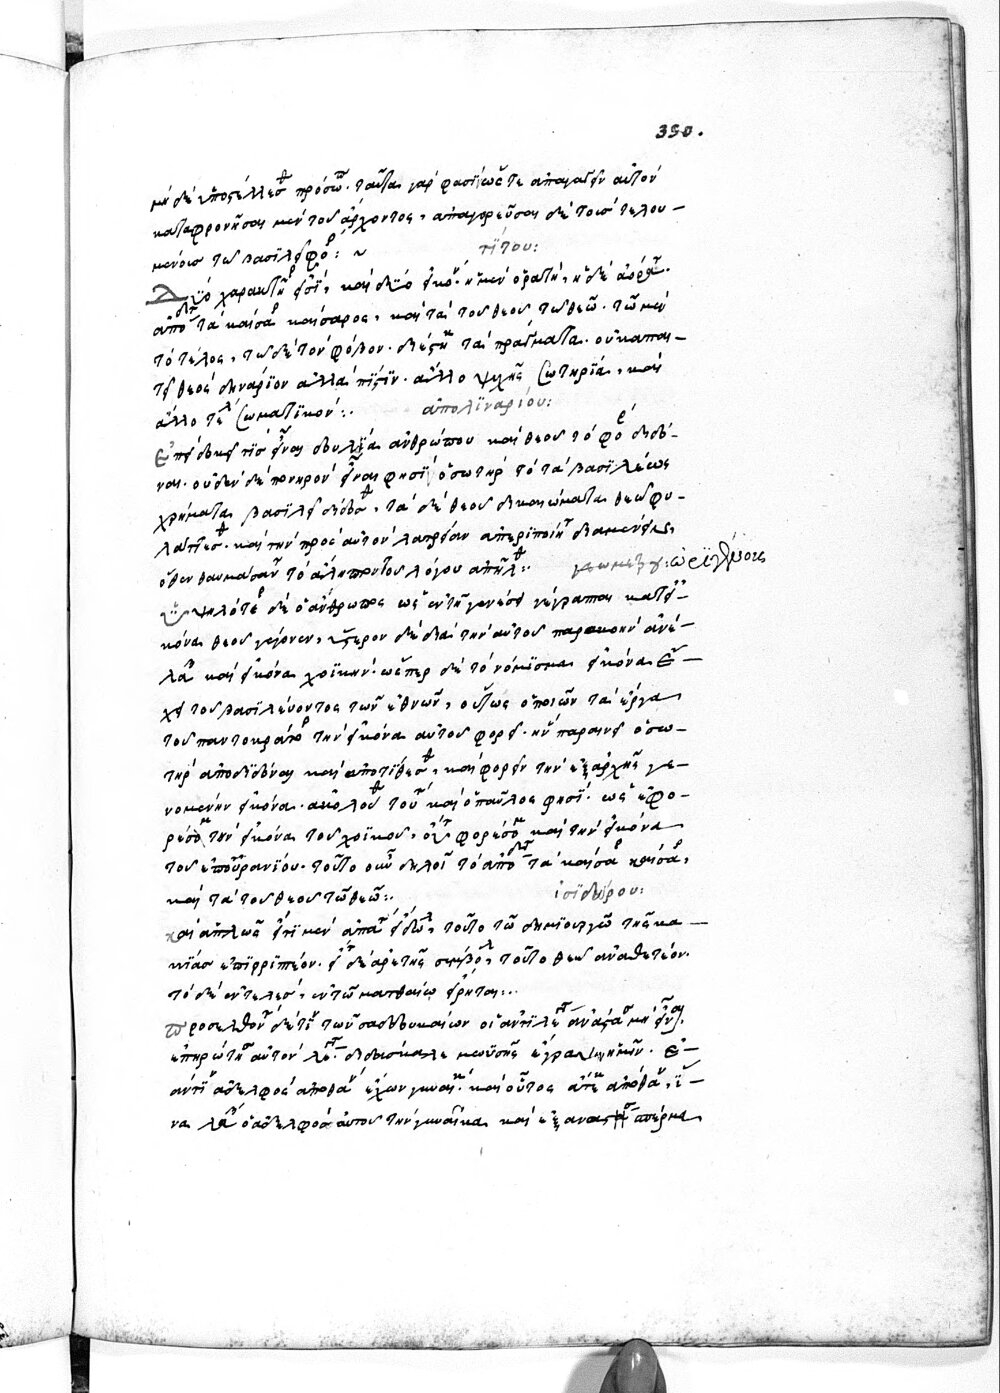 390.
μὴ δὲ ὑποστέλλεσθ πρόσωπ. ταῦτα γάρ φασὶν ὥστε ἀπαγαγεῖν αὐτὸν
καταφρονῆσαι μὲν τοῦ ἄρχοντος, ἀπαγορεῦσαι δὲ τοῖς τελου-
μένοις τῷ βασιλεῖ φόρ: ~ τίτου:
Δύο χαρακτῆρ εἰσὶ, καὶ δύο εἰκόν. ἡ μὲν ὁρατὴ, ἡ δὲ ἀόρατ.
ἀπόδοτ τὰ καίσαρ καίσαρος, καὶ τὰ τοῦ θεοῦ τῷ θεῷ. τῷ μὲν
τὸ τέλος, τῷ δὲ τὸν φόβον. διέστηκ τὰ πράγματα. οὐκ ἀπαι-
τεῖ θεὸς δηνάριον ἀλλὰ πίστιν. ἄλλο ψυχῆς σωτηρία, καὶ
ἄλλο τέλ σωματικόν:. ἀπολιναρίου:
Ἐπεὶ δοκεῖ τισὶ εἶναι δουλεία ἀνθρώπου καὶ θεοῦ τὸ φόρ διδό-
ναι. οὐδὲν δὲ πονηρὸν εἶναι φησὶν ὁ σωτὴρ τὸ τὰ βασιλέως
χρήματα βασιλεῖ δίδοσθ, τὰ δὲ θεοῦ δικαιώματα θεῷ φυ-
λάττεσθ. καὶ τὴν πρὸς αὐτὸν λατρείαν ἀπερίποίητ διαμένειν.
ὅθεν θαυμάσαντ τὸ ἀληπτον τοῦ λόγου ἀπῆλθ:. ὠριγένους
Ὑψηλότερ δὲ ὁ ἄνθρωπος ὡς ἐν τῇ γενέσει γέγραπται κατ εἰ-
κόνα θεοῦ γέγονεν, ὕστερον δὲ διὰ τὴν αὐτοῦ παρακοὴν ἀνέ-
λαβ καὶ εἰκόνα χοϊκήν. ὥσπερ δὲ τὸ νόμισμα εἰκόνα ἔ-
χει τοῦ βασιλεύοντος τῶν ἐθνῶν, οὕτως ὁ ποιῶν τὰ ἔργα
τοῦ παντοκράτορ τὴν εἰκόνα αὐτοῦ φορεῖ. ἣν παραινεῖ ὁ σω-
τὴρ ἀποδιδόναι καὶ ἀποτίθεσθ, καὶ φορεῖν τὴν ἐξαρχῆς γε-
νομένην εἰκόνα. ἀκόλουθ τούτ καὶ ὁ παῦλος φησί. ὡς ἐφο-
ρέσαμ τὴν εἰκόνα τοῦ χοϊκοῦ, οὕτ φορέσομ καὶ τὴν εἰκόνα
τοῦ ἐπουρανίου. τοῦτο οὖν δηλοῖ τὸ ἀπόδοτ τὰ καίσαρ καίσαρ,
καὶ τὰ τοῦ θεοῦ τῷ θεῷ:. ἰσιδώρου:
καὶ ἁπλῶς εἴ τι μὲν ἀπατ εἴδωλ, τοῦτο τῷ δημιουργῷ τῆς κα-
κίας ἐπιρριπτέον. εἴ τ δὲ ἀρετῆς σύμβολ, τοῦτο θεῷ ἀναθετέον.
τὸ δὲ ἐντελὲς, ἐν τῷ ματθαίῳ εἴρηται:.
προσελθόντ δέ τιν τῶν σαδδουκαίων οἱ ἀντιλέγοντ ἀνάστασ μὴ εἶναι,
ἐπηρώτησ αὐτὸν λέγοντ. διδάσκαλε μωϋσῆς ἔγραψεν ἡμῖν. ἐ-
άν τιν ἀδελφὸς ἀποθάν ἔχων γυναῖκ. καὶ οὗτος ἄτεκ ἀποθάν, ἵ-
να λάβ ὁ ἀδελφὸς αὐτοῦ τὴν γυναῖκα καὶ ἐξαναστήσ σπέρμα